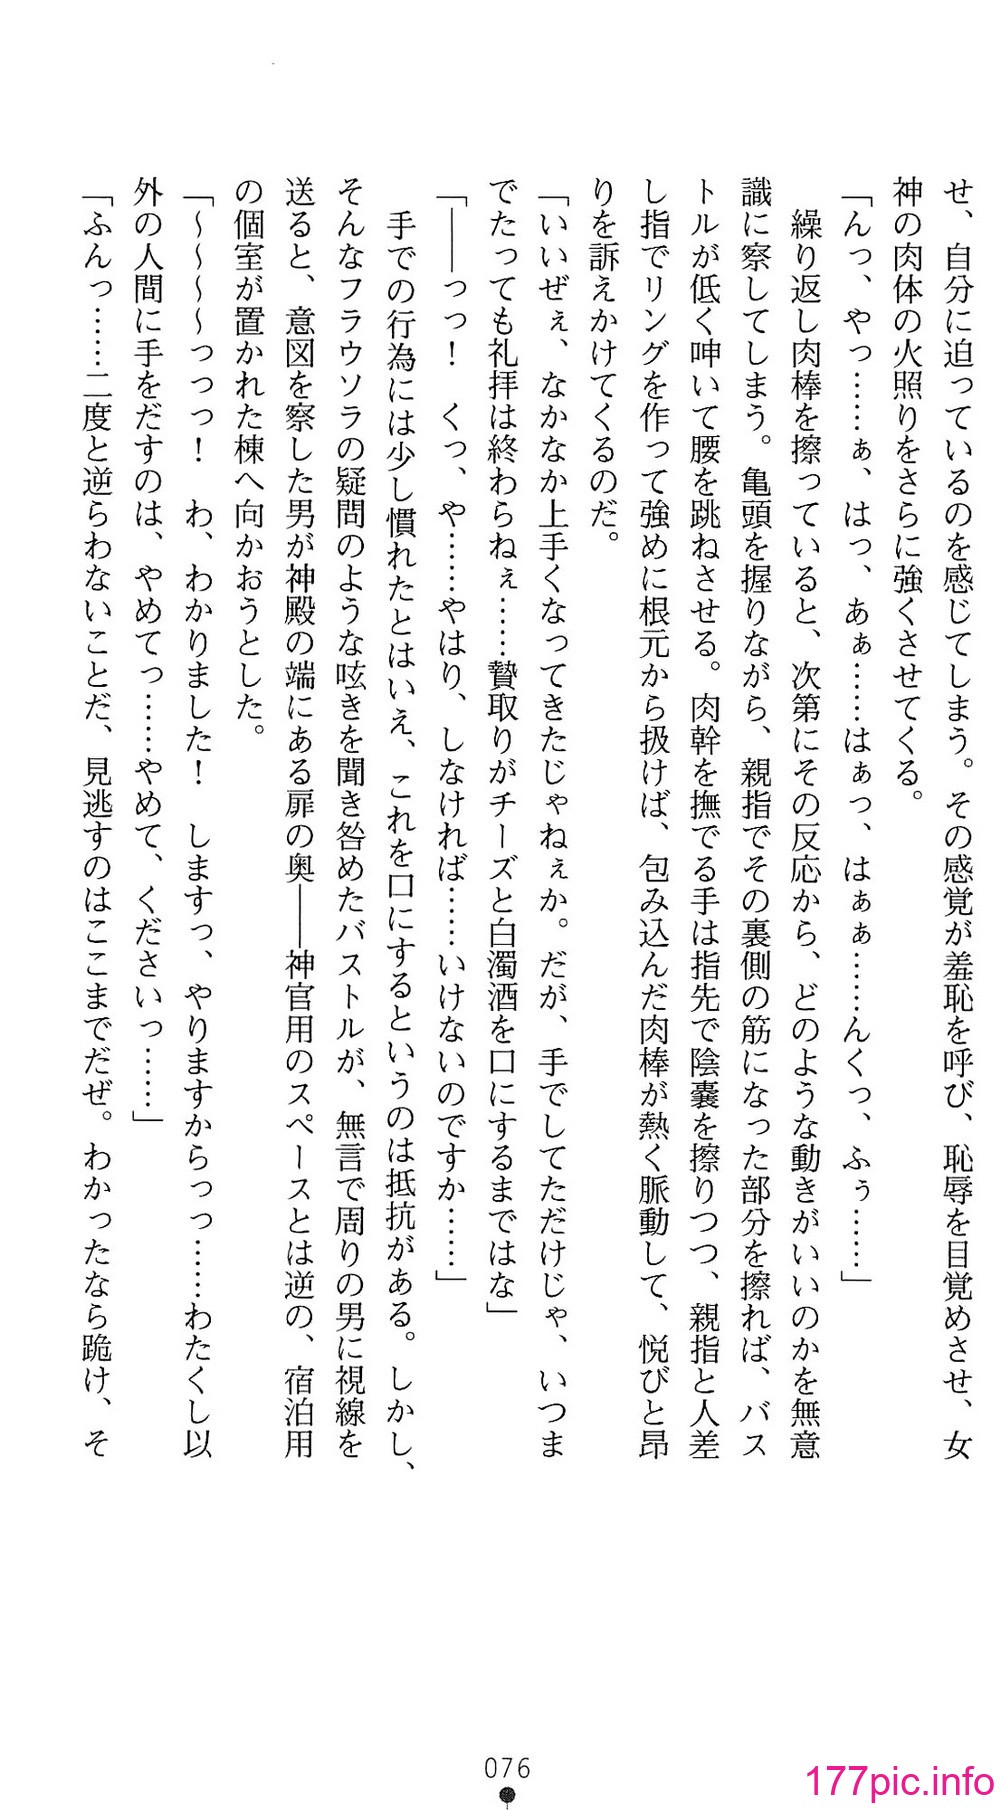 せ、自分に迫っているのを感じてしまう。その感覚が羞恥を呼び、恥辱を目覚めさせ、女
神の肉体の火照りをさらに強くさせてくる。
「んっ、やっ……ぁ、はっ、あぁ……はぁっ、はぁぁ……んくっ、ふぅ……」
繰り返し肉棒を擦っていると、次第にその反応から、どのような動きがいいのかを無意
識に察してしまう。亀頭を握りながら、親指でその裏側の筋になった部分を擦れば、バス
トルが低く呻いて腰を跳ねさせる。肉幹を撫でる手は指先で陰嚢を擦りつつ、親指と人差
し指でリングを作って強めに根元から扱けば、包み込んだ肉棒が熱く脈動して、悦びと昂
りを訴えかけてくるのだ。
「いいぜぇ、なかなか上手くなってきたじゃねぇか。だが、手でしてただけじゃ、いつま
でたっても礼拝は終わらねぇ……贄取りがチーズと白濁酒を口にするまではな」
「――っっ！　くっ、や……やはり、しなければ……いけないのですか……」
手での行為には少し慣れたとはいえ、これを口にするというのは抵抗がある。しかし、
そんなフラウソラの疑問のような呟きを聞き咎めたバストルが、無言で周りの男に視線を
送ると、意図を察した男が神殿の端にある扉の奥――神官用のスペースとは逆の、宿泊用
の個室が置かれた棟へ向かおうとした。
「～～～～っっっ！　わ、わかりました！　しますっ、やりますからっっ……わたくし以
外の人間に手をだすのは、やめてっ……やめて、くださいっ……」
「ふんっ……二度と逆らわないことだ、見逃すのはここまでだぜ。わかったなら跪け、そ
076
177pic.info